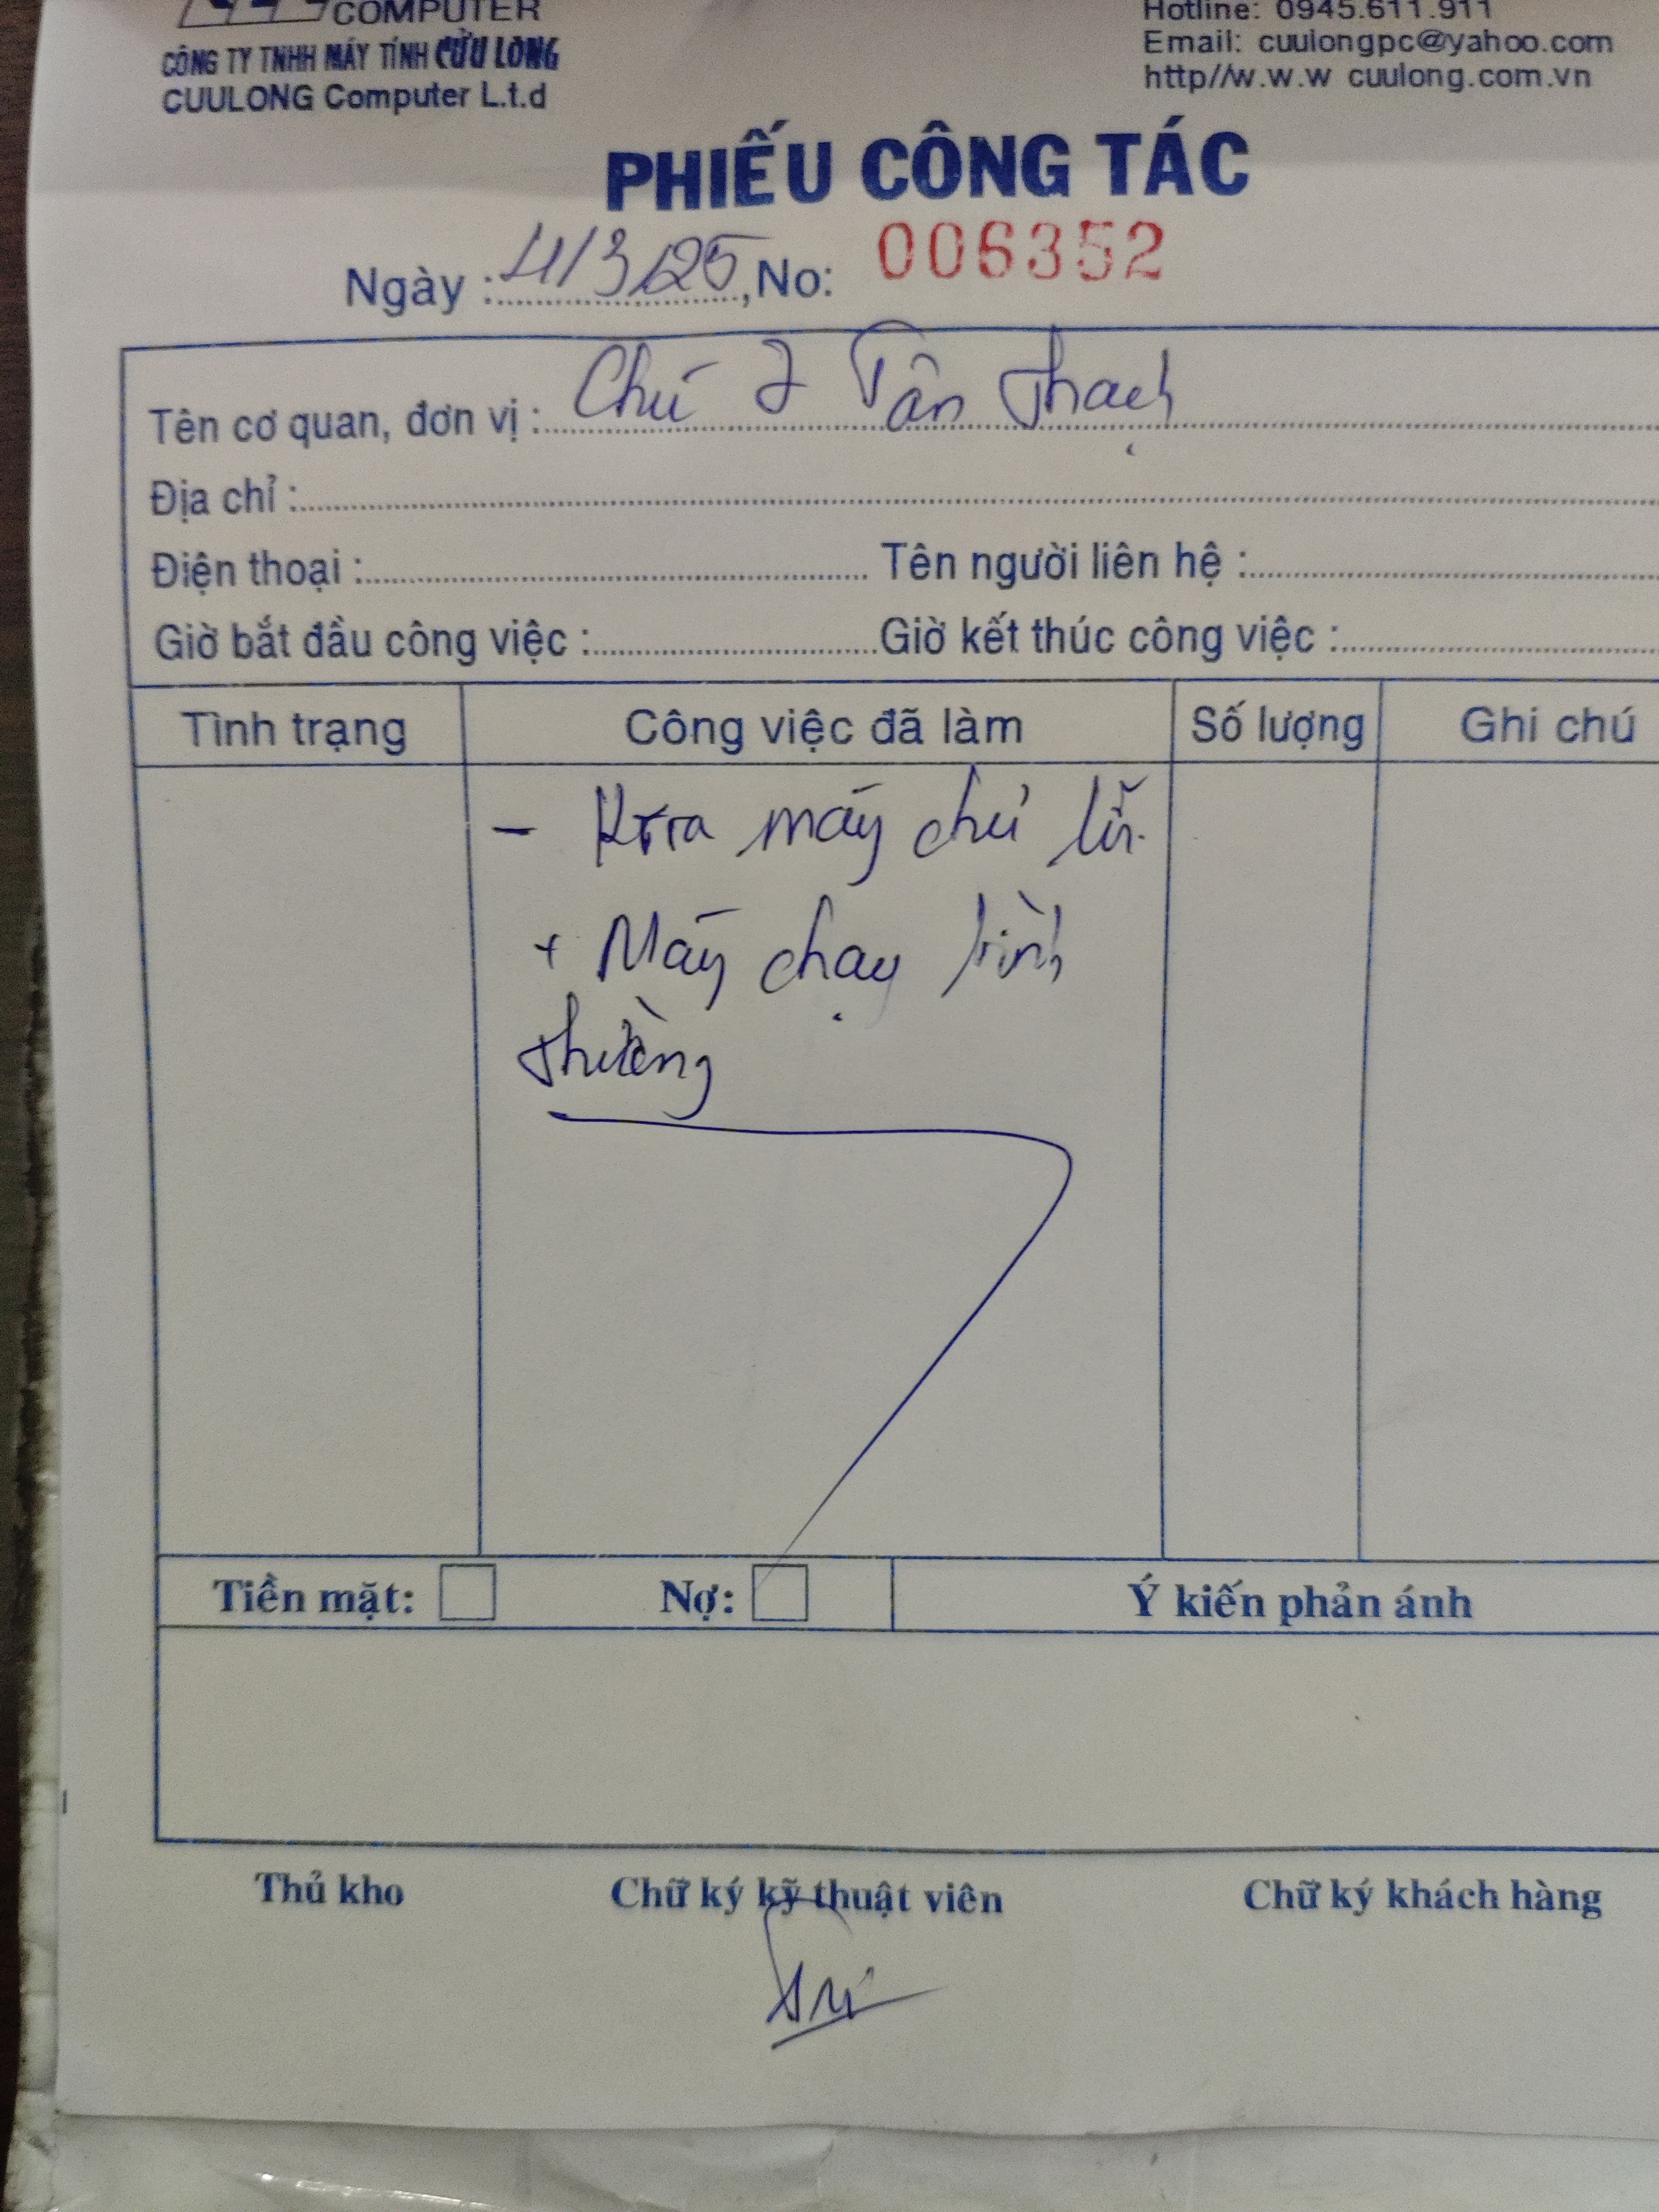 COMPUTER
CÔNG TY TNHH MÁY TÍNH CỬU LONG
CUULONG Computer L.t.d
Hotline: 0945.611.911
Email: cuulongpc@yahoo.com
http//w.w.w cuulong.com.vn
PHIẾU CÔNG TÁC
Ngày : 4/3/25, No: 006352
Tên cơ quan, đơn vị : Chú 7 Tân Thạch
Địa chỉ :
Điện thoại : Tên người liên hệ :
Giờ bắt đầu công việc : Giờ kết thúc công việc :
Tình trạng Công việc đã làm Số lượng Ghi chú
- Ktra máy chủ
+ Máy chạy bình
thường
Tiền mặt: Nợ: Ý kiến phản ánh
Thủ kho Chữ ký kỹ thuật viên Chữ ký khách hàng